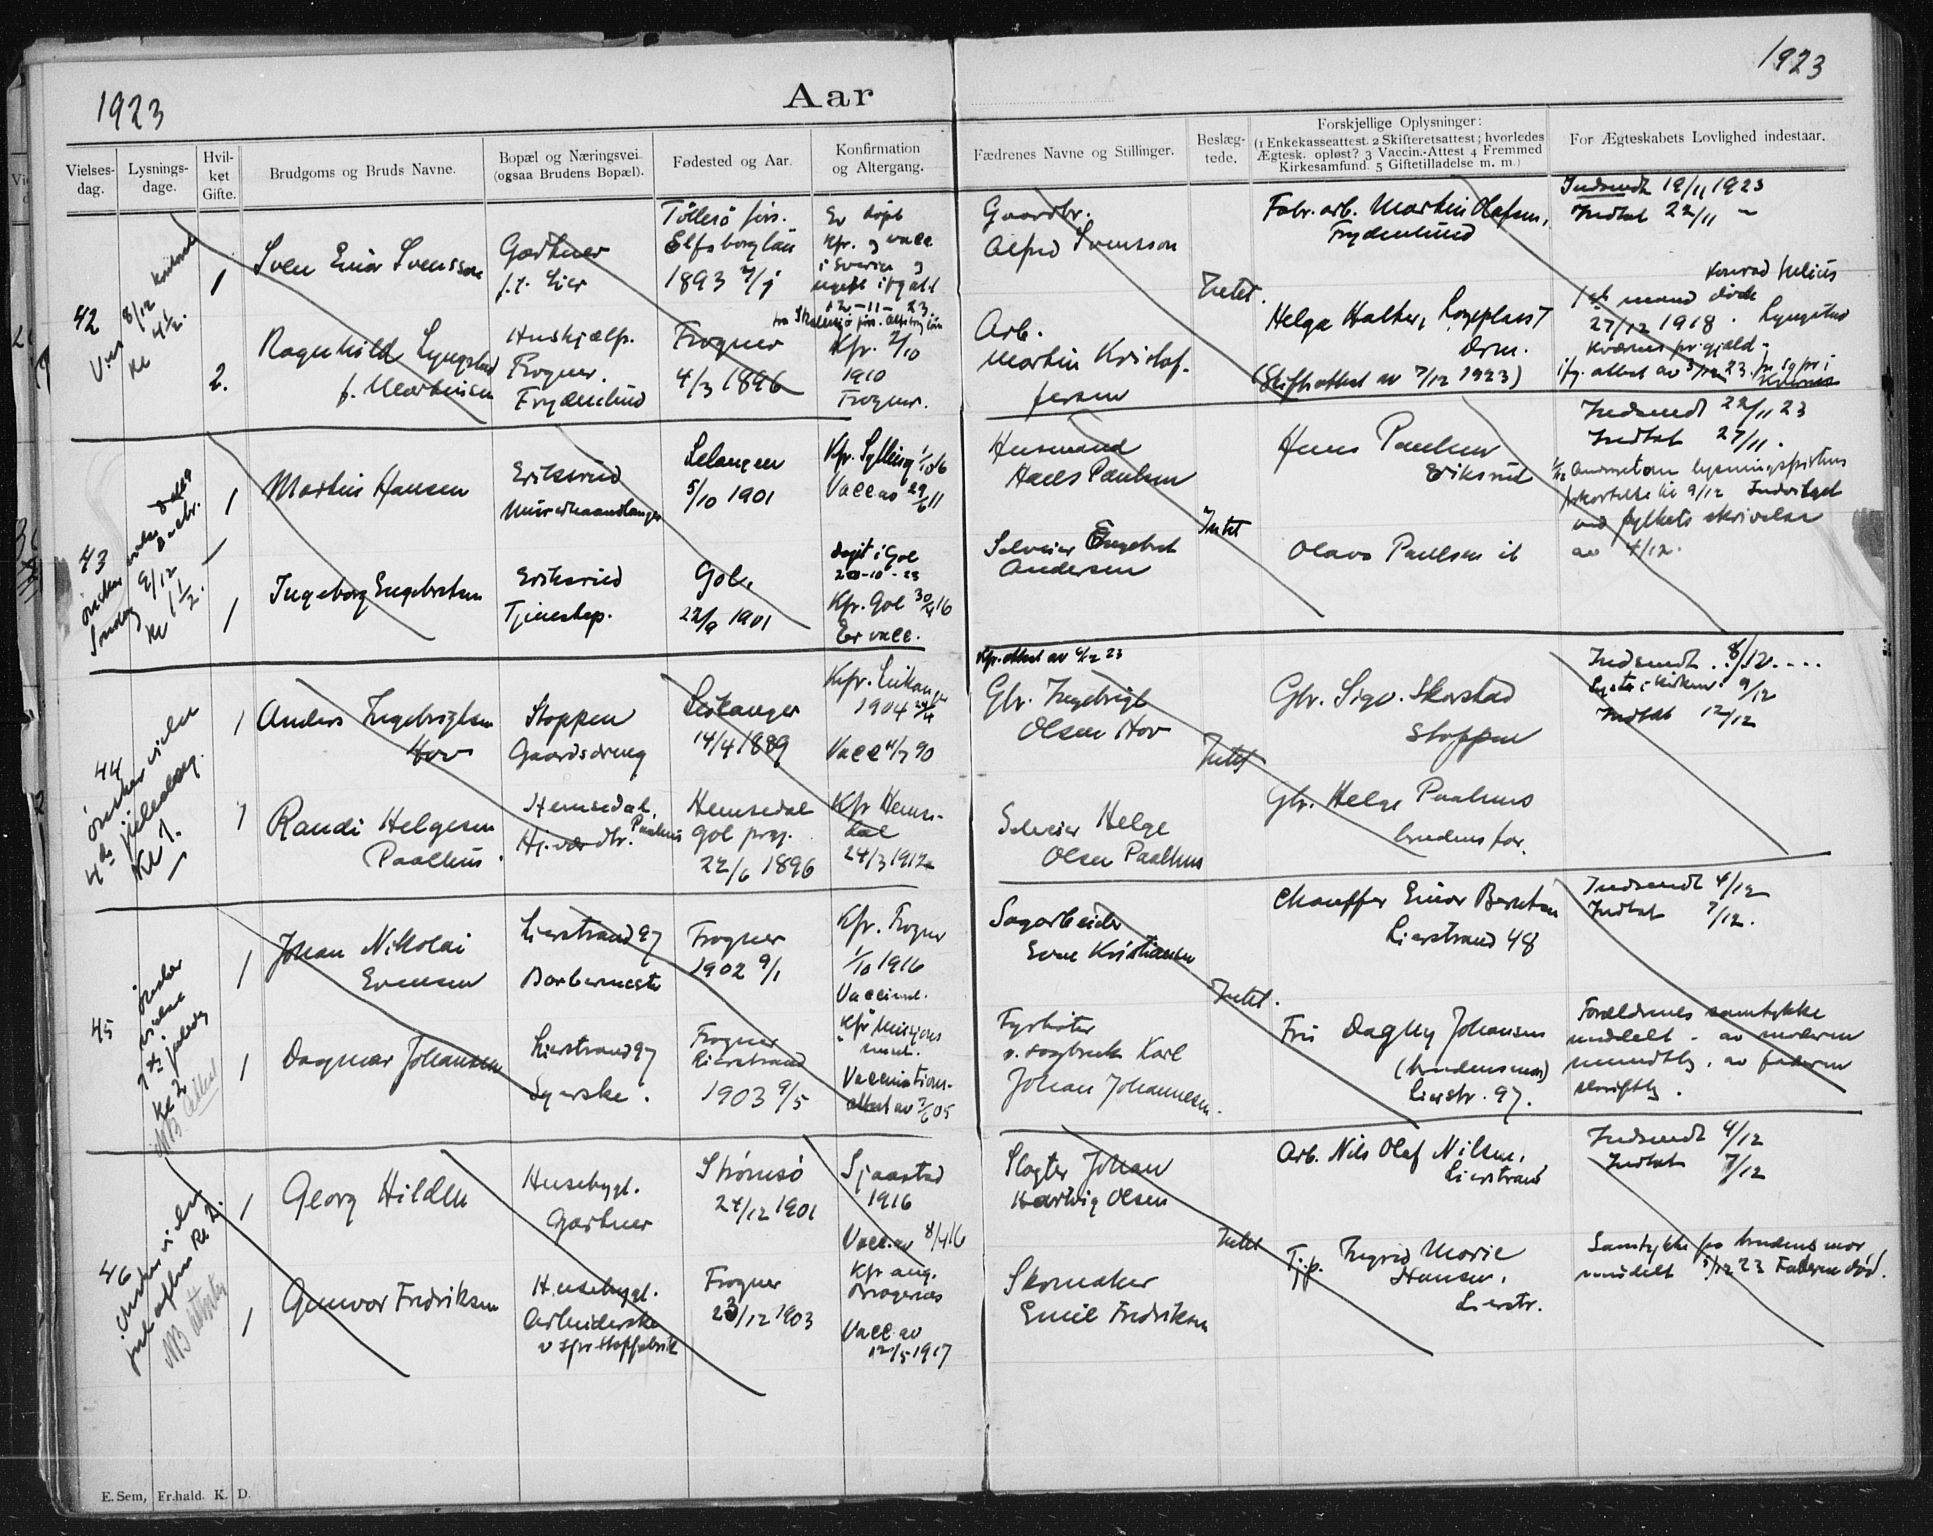 1923
Aar
1923
Vielses-
dag.
Lysnings-
dage.
Hvil-
ket
Gifte.
Brudgoms og Bruds Navne.
Bopæl og Næringsvei
(ogsaa Brudens Bopæl).
Fødested og Aar.
Konfirmation
og Altergang.
Fædrenes Navne og Stillinger.
Beslæg-
tede.
Forskjellige Oplysninger:
(1 Enkekasseattest. 2 Skifteretsattest; hvorledes
Ægtesk. opløst? 3 Vaccin.-Attest 4 Fremmed
Kirkesamfund. 5 Giftetilladelse m. m.)
For Ægteskabets Lovlighed indestaar.
42
8/12
Kl 4½.
1
Sven Einar Svensson
Gartner
f.t. Lier
Töllesö förs.
Elfsborg län
1893
Er døpt
Kfr. og vacc
i Sverige og
ugift ifg att
12-11-23.
Gaardbr.
Alfred Svensson
Intet.
Fabr.arb. Martin Olafsen,
Frydenlund
Indsendt 19/11 1923
Indtat 22/11 -
2.
Ragnhild Lyngstad
f. Martinsen
Hushjælp.
Frogner.
Frydenlund
Frogner
4/3 1896
Kfr. 2/10
1910
Frogner.
Arb.
Martin Kristof-
fersen
Helga Halker,
Drm.
(Skifteattest av 7/12 1923)
Konrad Julius
1ste mand døde
27/12 1918. Lyngstad
Kværnes prgjæld -
ifg. attest av 3/12 23 fr. Sgpr i
43
ønsker vielse
Søndag 9/12
Kl 1½.
1
Martin Hansen
Eriksrud
Murerhaandlanger
Selangen
5/10 1901
Kfr. Sylling 1/10 16
Vacc av 29/6 11
Husmand
Hans Paulsen
Intet
Hans Paulsen
Eriksrud
Indsendt 22/11 23
Indtat 27/11.
Andmetom lysningsfristens
forkortelse til 9/12 Indvilget
ved fylkets skrivelse
av 4/12.
1
Ingeborg Engebretsen
Eriksrud
Tjenestep.
Gol.
22/9 1901
døpt i Gol
20-10-23
Kfr. Gol 30/4 16
Er vacc.
Selveier Engebret
Andersen
Olava Paulsen ib
44
ønsker vielse
4de juledag.
Kl 1.
1
Anders Ingebrigtsen
Hov
Stoppen
Gaardsdreng
Leikanger
14/4 1889
Kfr. Leikanger
1904 24/4
Vacc 11/7 90
Kfr.attest av 6/12 23
Gbr. Ingebrigt
Olsen Hov
Intet
Gbr. Sigv. Skorstad
Stoppen
Indsendt 8/12
Lyste i kirken 9/12
Indtat 12/12
1
Randi Helgesen
Paalhus
Hemsedal,
Hj.vær. dtr. Paalhus
Hemsedal
Gol prgj.
22/6 1896
Kfr Hemse-
dal
24/3 1912
Selveier Helge
Olsen Paalhus
Gbr. Helge Paalhus
brudens far.
45
ønsker
vielse
1ste juledag
Kl 2
NB
1
Johan Nikolai
Evensen
Lierstrand 97
Barbermester
Frogner
1902 9/1
Kfr. Frogner
1/10 1916
Vaccinul.
Sagarbeider
Even Kristiansen
Intet.
Chauffør Einar Berntsen
Lierstrand 48
Indsendt 4/12
Indtat 7/12.
1
Dagmar Johansen
Lierstrand 97
Syerske.
Frogner
Lierstrand
1903 9/5
Kfr Misjons
Vaccinations-
attest av 7/6 05
Fyrbøter
v. sagbruk Karl
Johan Johannesen.
Fru Dagny Johansen
(brudens mor)
Lierstr. 97.
Forældrenes samtykke
meddelt - av moderen
mundtlig, av faderen
skriftlig.
46
Ønsker vielse
juleaften Kl 2.
NB
1
Georg Hilden
Husebygt.
Gartner
Strømsø
24/12 1901
Sjaastad
1916
Vacc.av 8/4 16
Slagter Johan
Hartvig Olsen
Intet
Arb. Nils Olaf Nilsen,
Lierstrand
Indsendt 4/12
Indtat 7/12
1
Gunvor Fredriksen
Husebygt.
Arbeiderske
Frogner
23/12 1903
Kfr aug.
Bragernes
Vacc av
12/5 1917
Skomaker
Emil Fredriksen
Tjp. Ingrid Marie
Hansen,
Lierstr.
Samtykke fra brudens mor
meddelt 5/12 23 Faderen død.
E. Sem, Fr.hald. K. D.